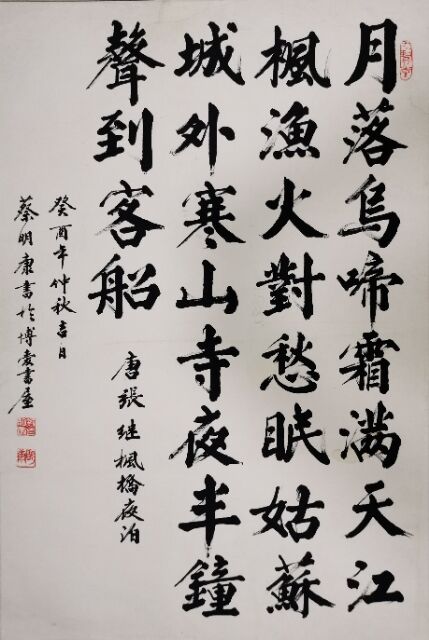 月落烏啼霜满天江
楓漁火對愁眠姑蘇
城外寒山寺夜半鐘
聲到客船
唐張继楓橋夜泊
癸酉年仲秋吉日
蔡明康書於博爱書屋